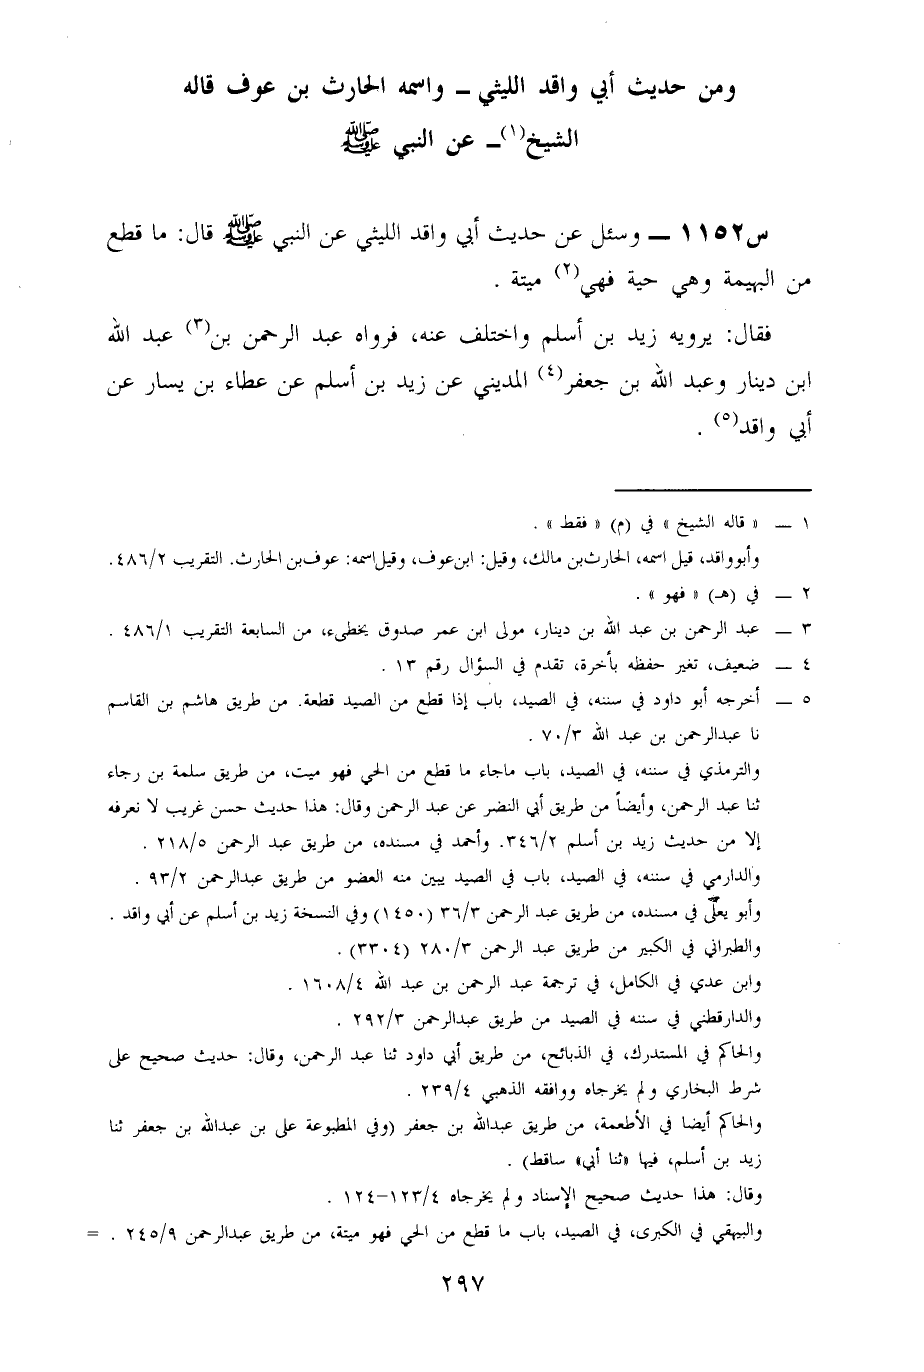 ومن حديث أبي واقد الليثي ــ واسمه الحارث بن عوف قاله
الشيخ(١)ــ عن النبي ﷺ
س١١٥٢ ــ وسئل عن حديث أبي واقد الليثي عن النبي ﷺ قال: ما قطع
من البهيمة وهي حية فهي(٢) ميتة .
فقال: يرويه زيد بن أسلم واختلف عنه، فرواه عبد الرحمن بن(٣) عبد الله
ابن دينار وعبد الله بن جعفر(٤) المديني عن زيد بن أسلم عن عطاء بن يسار عن
أبي واقد(٥) .
١ ــ « قاله الشيخ » في (م) « فقط » .
وأبوواقد، قيل اسمه، الحارث‌بن مالك، وقيل: ابن‌عوف، وقيل‌اسمه: عوف‌بن الحارث. التقريب ٤٨٦/٢.
٢ ــ في (هـ) « فهو » .
٣ ــ عبد الرحمن بن عبد الله بن دينار، مولى ابن عمر صدوق يخطىء، من السابعة التقريب ٤٨٦/١ .
٤ ــ ضعيف، تغير حفظه بأخرة، تقدم في السؤال رقم ١٣ .
٥ ــ أخرجه أبو داود في سننه، في الصيد، باب إذا قطع من الصيد قطعة. من طريق هاشم بن القاسم
نا عبدالرحمن بن عبد الله ٧٠/٣ .
والترمذي في سننه، في الصيد، باب ماجاء ما قطع من الحي فهو ميت، من طريق سلمة بن رجاء
ثنا عبد الرحمن، وأيضاً من طريق أبي النضر عن عبد الرحمن وقال: هذا حديث حسن غريب لا نعرفه
إلا من حديث زيد بن أسلم ٣٤٦/٢. وأحمد في مسنده، من طريق عبد الرحمن ٢١٨/٥ .
والدارمي في سننه، في الصيد، باب في الصيد يبين منه العضو من طريق عبدالرحمن ٩٣/٢ .
وأبو يعلّى في مسنده، من طريق عبد الرحمن ٣٦/٣ (١٤٥٠) وفي النسخة زيد بن أسلم عن أبي واقد .
والطبراني في الكبير من طريق عبد الرحمن ٢٨٠/٣ (٣٣٠٤) .
وابن عدي في الكامل، في ترجمة عبد الرحمن بن عبد الله ١٦٠٨/٤ .
والدارقطني في سننه في الصيد من طريق عبدالرحمن ٢٩٢/٣ .
والحاكم في المستدرك، في الذبائح، من طريق أبي داود ثنا عبد الرحمن، وقال: حديث صحيح على
شرط البخاري ولم يخرجاه ووافقه الذهبي ٢٣٩/٤ .
والحاكم أيضا في الأطعمة، من طريق عبدالله بن جعفر (وفي المطبوعة على بن عبدالله بن جعفر ثنا
زيد بن أسلم، فيها «ثنا أبي» ساقط) .
وقال: هذا حديث صحيح الإسناد ولم يخرجاه ١٢٣/٤–١٢٤ .
والبيهقي في الكبرى، في الصيد، باب ما قطع من الحي فهو ميتة، من طريق عبدالرحمن ٢٤٥/٩ . =
٢٩٧